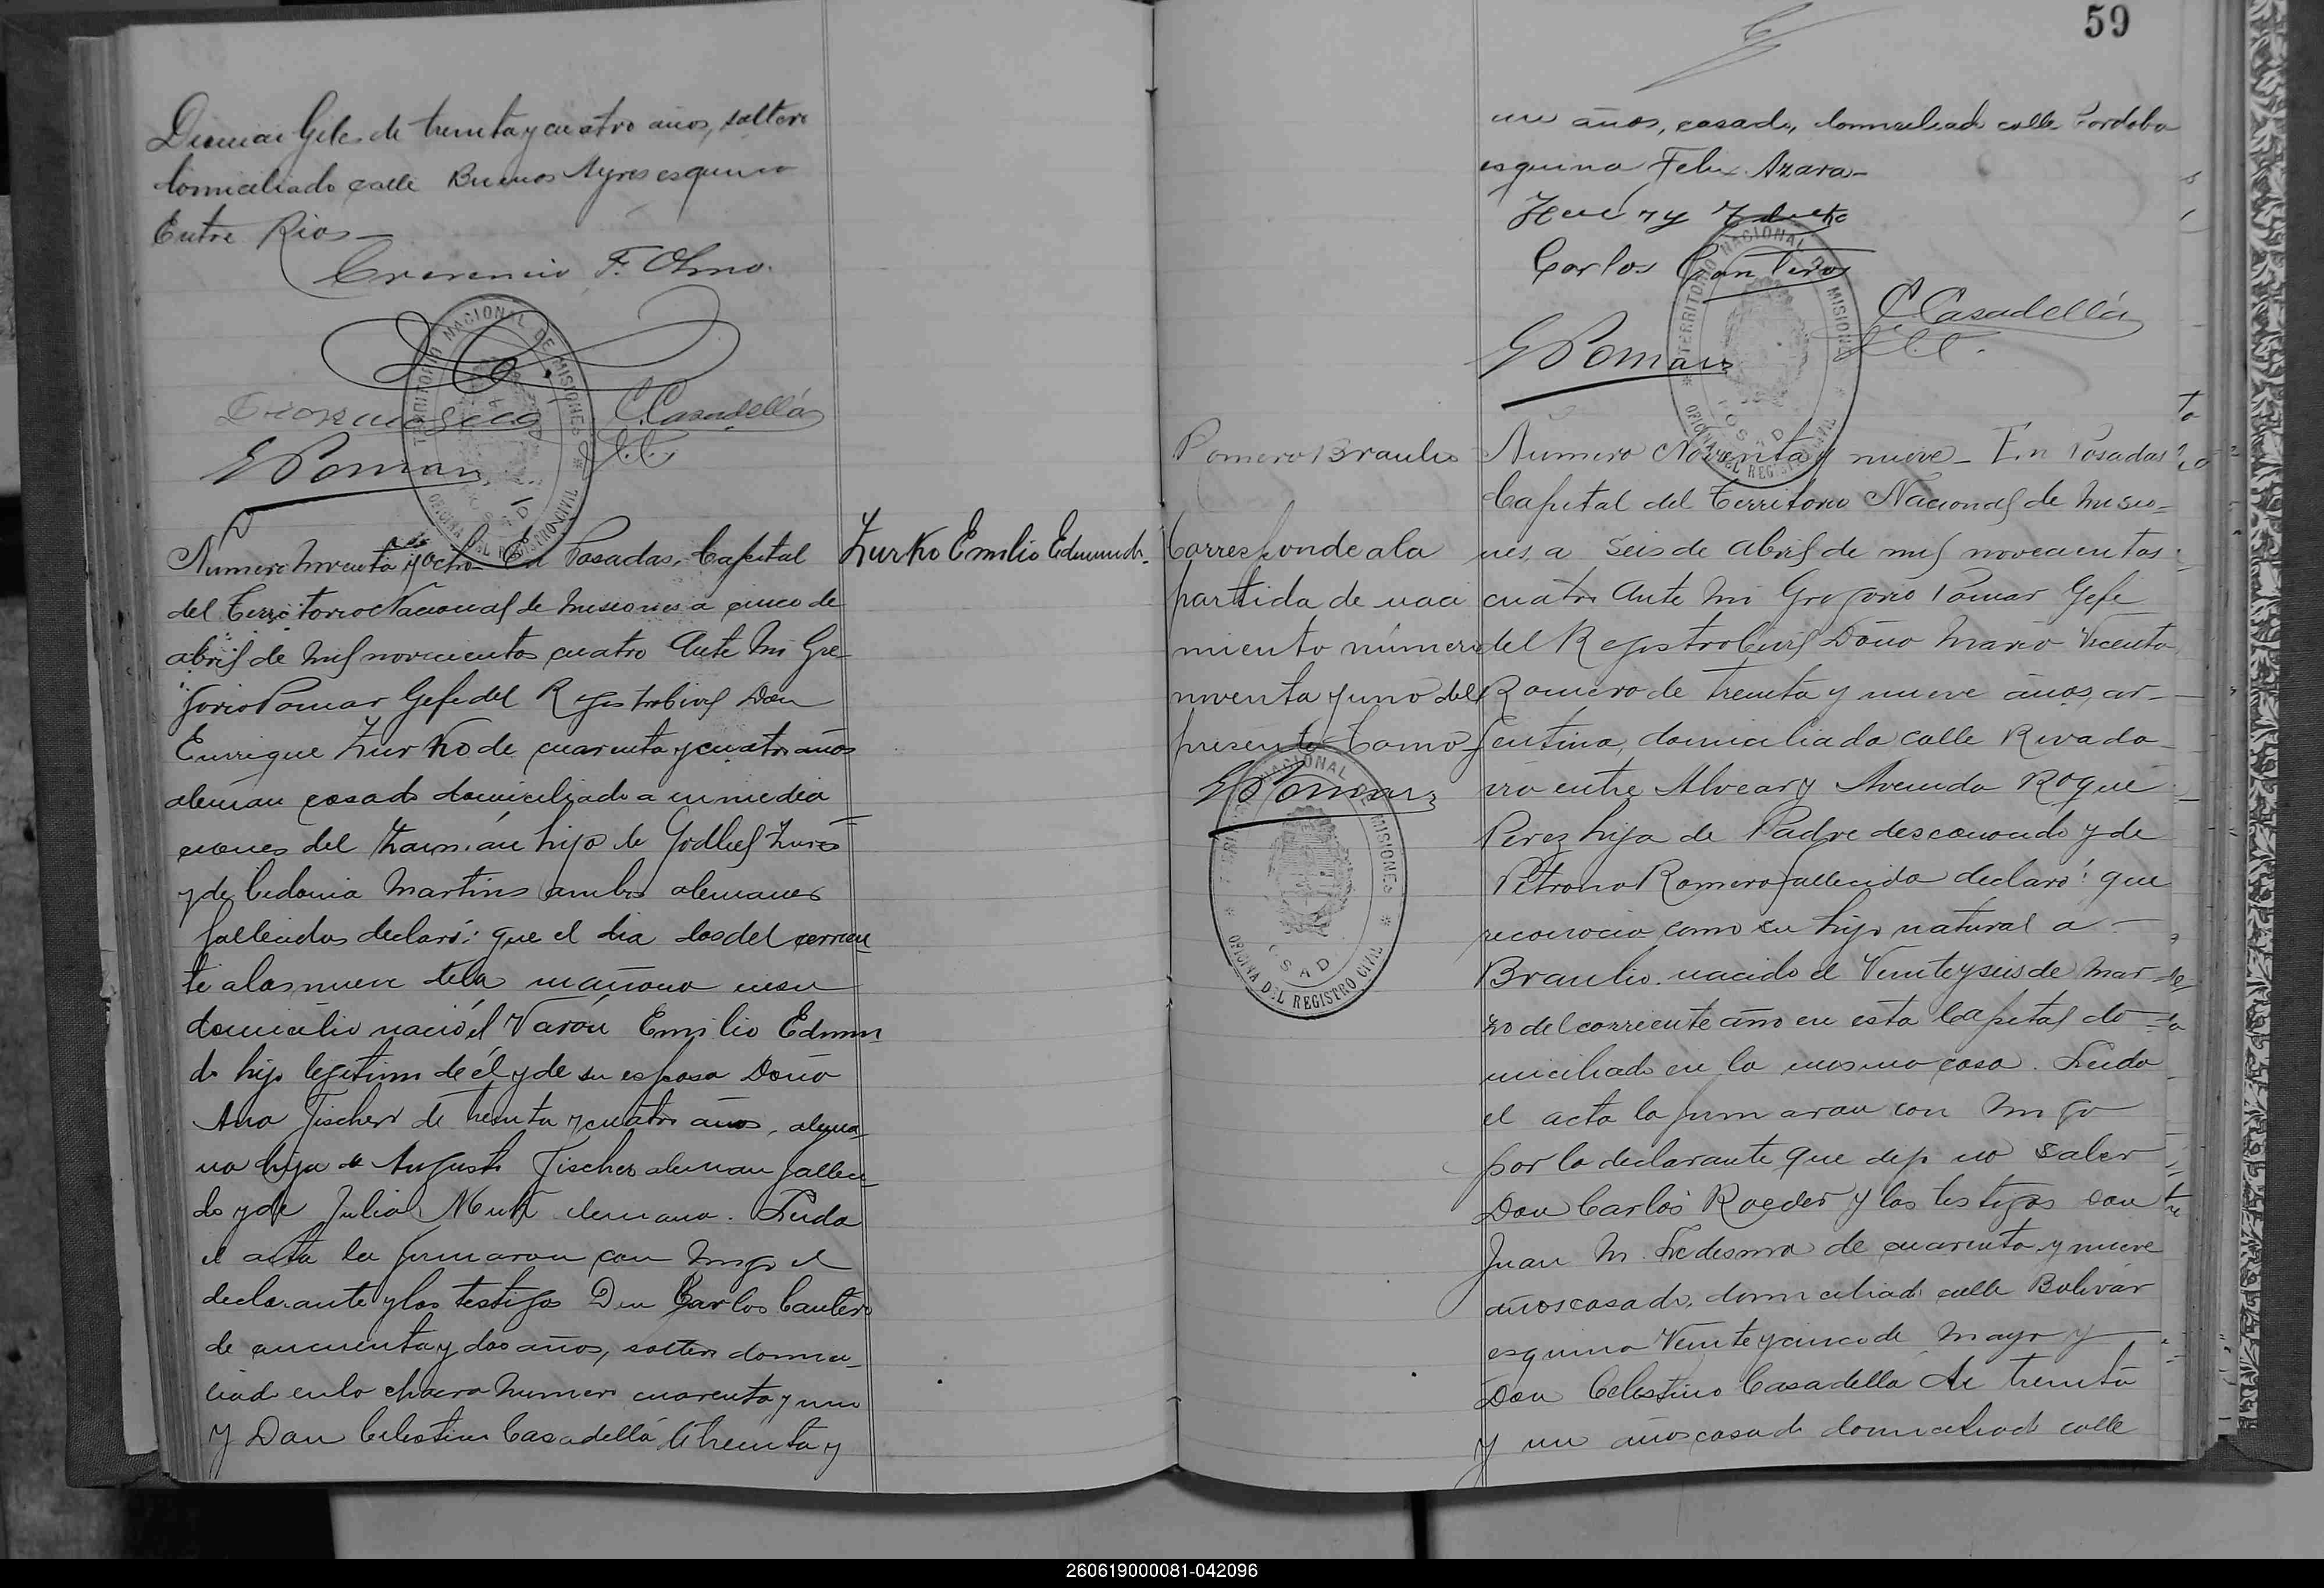 Diomar Geles de treinta y cuatro años, soltero
domiciliado calle Buenos Ayres esquina
Entre Rios—
Crecencio F. Olmo.
C. Casadellá
G Pomar
TERRITORIO NACIONAL DE MISIONES
POSADAS
OFICINA DEL REGISTRO CIVIL
Zurko Emilio Edmundo.
Numero noventa y ocho En Posadas, Capital
del Territorio Nacional de Misiones a cinco de
abril de mil novecientos cuatro Ante Mi Gre
gorio Pomar Gefe del Registro Civil Don
Enrique Zurko de cuarenta y cuatro años
aleman casado domiciliado a inmedia
ciones del Zaimán hijo de Godlief Zurco
y de Cedonia Martins ambos alemanes
fallecidos declaró: que el dia dos del corrien
te a las nueve de la mañana en su
domicilio nació el Varón Emilio Edmun
do hijo legitimo de él y de su esposa Doña
Ana Fischer de treinta y cuatro años, alema
na hija de Augusto Fischer aleman falleci
do y de Julia alemana. Leida
el acta la firmaron con migo el
declarante y los testigos Don Carlos Cantero
de cincuenta y dos años, soltero domici
liado en la chacra numero cuarenta y uno
y Don Celestino Casadellá de treinta y
59
un años, casado, domiciliado calle Cordoba
esquina Felix Azara—
Henry Zurko
Carlos Canteros
C. Casadellá
G Pomar
TERRITORIO NACIONAL DE MISIONES
POSADAS
OFICINA DEL REGISTRO CIVIL
Romero Braulio
Corresponde a la
partida de naci
miento número
noventa y uno del
presente Tomo
G Pomar
TERRITORIO NACIONAL DE MISIONES
POSADAS
OFICINA DEL REGISTRO CIVIL
Numero Noventa y nueve— En Posadas
Capital del Territorio Nacional de Misio-
nes, a seis de abril de mil novecientos
cuatro Ante Mi Gregorio Pomar Gefe
del Registro Civil Doña Maria Vicenta
Romero de treinta y nueve años, ar-
gentina, domiciliada calle Rivada-
via entre Alvear y Avenida Roque
Perez hija de Padre desconocido y de
Petrona Romero fallecida declaró: que
reconocia como su hijo natural a
Braulio nacido el Veinte y seis de Mar-
zo del corriente año en esta Capital do-
miciliado en la misma casa. Leida
el acta la firmaron con migo
por la declarante que dijo no saber
Don Carlos Roeder y los testigos don
Juan M. Ledesma de cuarenta y nueve
años casado, domiciliado calle Bolivar
esquina Veinte y cinco de Mayo y
Don Celestino Casadellá de treinta
y un años casado domiciliado calle
260619000081-042096